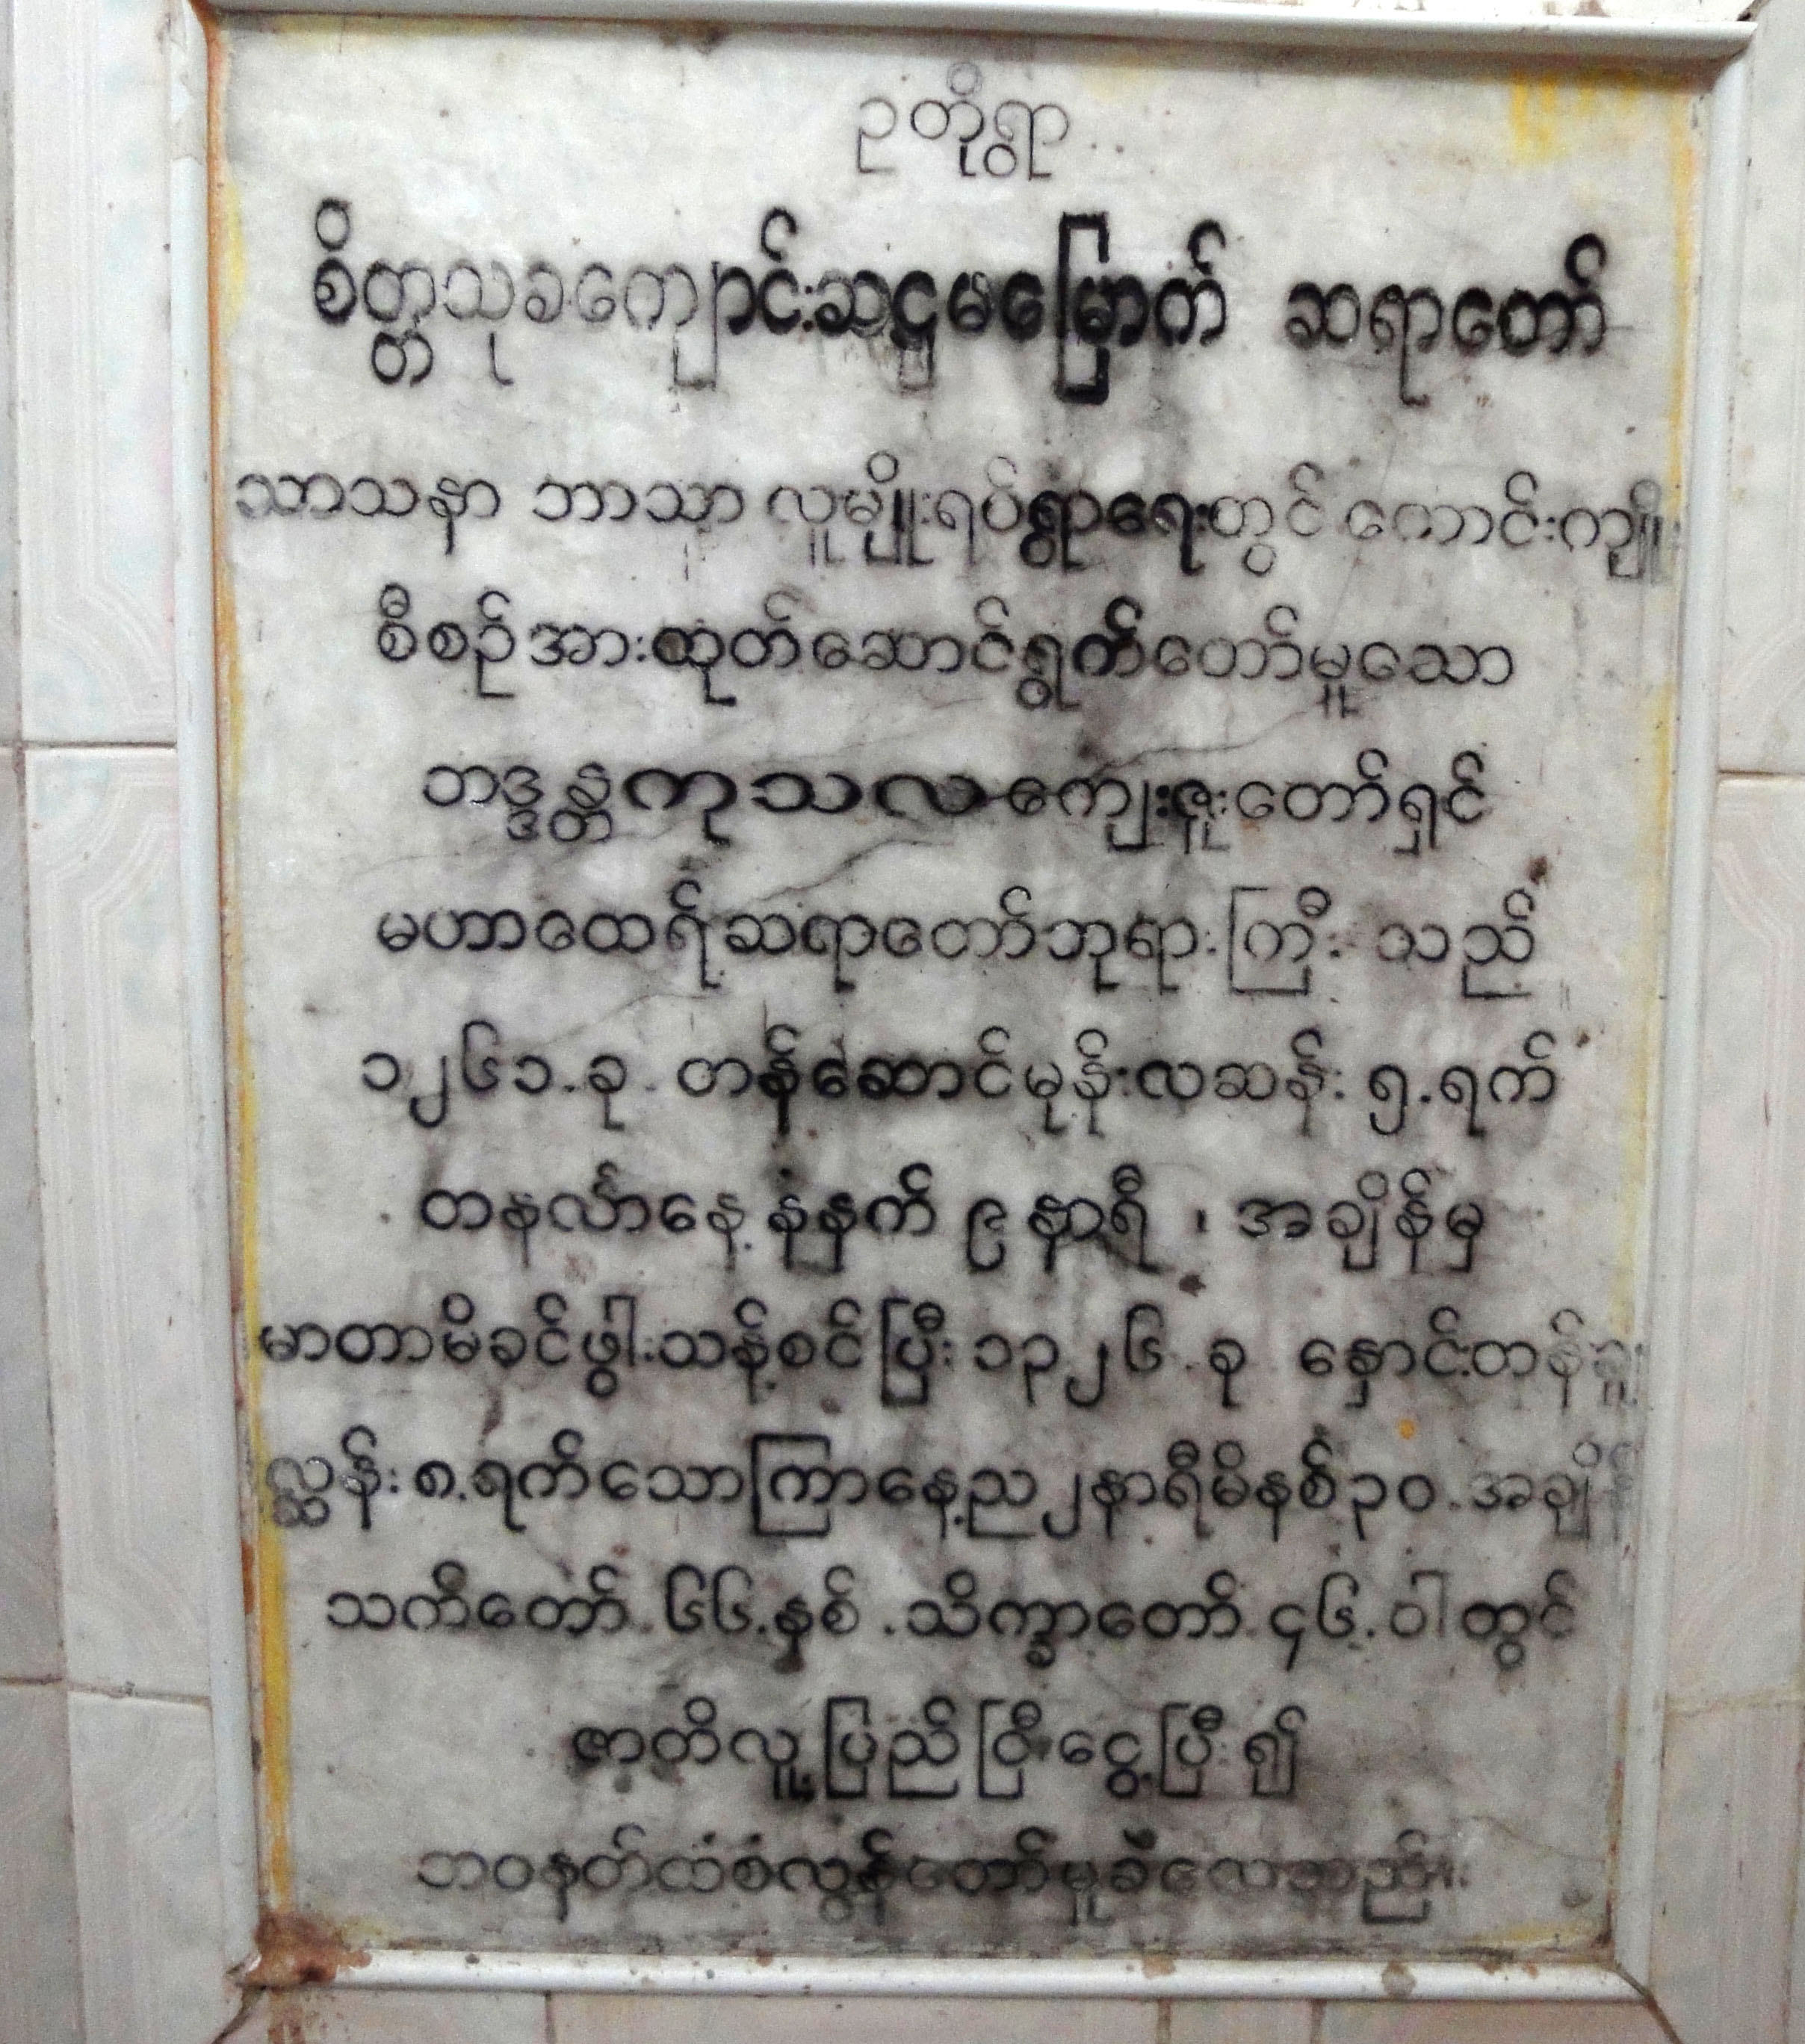 ဥတိုရွာ
စိတ္တသုခကျောင်းဆဋ္ဌမမြောက် ဆရာတော်
သာသနာ ဘာသာ လူမျိုးရပ်ရွာရေးတွင် ကောင်းကျိုး
စီစဉ်အားထုတ်ဆောင်ရွက်တော်မူသော
ဘဒ္ဒန္တကုသလကျေးဇူးတော်ရှင်
မဟာထေရ်ဆရာတော်ဘုရားကြီး သည်
၁၂၆၁.ခု တန်ဆောင်မုန်းလဆန်း ၅.ရက်
တနင်္လာနေ့ နံနက် ၉ နာရီ ၊ အချိန်မှ
မာတာမိခင်ဖွါးသန့်စင်ပြီး ၁၃၂၆.ခု နှောင်းတန်ခူး
လ္ဆန်း ၈.ရက်သောကြာနေ့ည ၂ နာရီမိနစ် ၃၀.အချိန်
သက်တော်.၆၆.နှစ်.သိက္ခာတော်.၄၆.ဝါတွင်
ဇာတိလူ့ပြည်ငြီးငွေ့ပြီး၍
ဘဝနတ်ထံစံလွန်တော်မူခဲ့လေသည်။